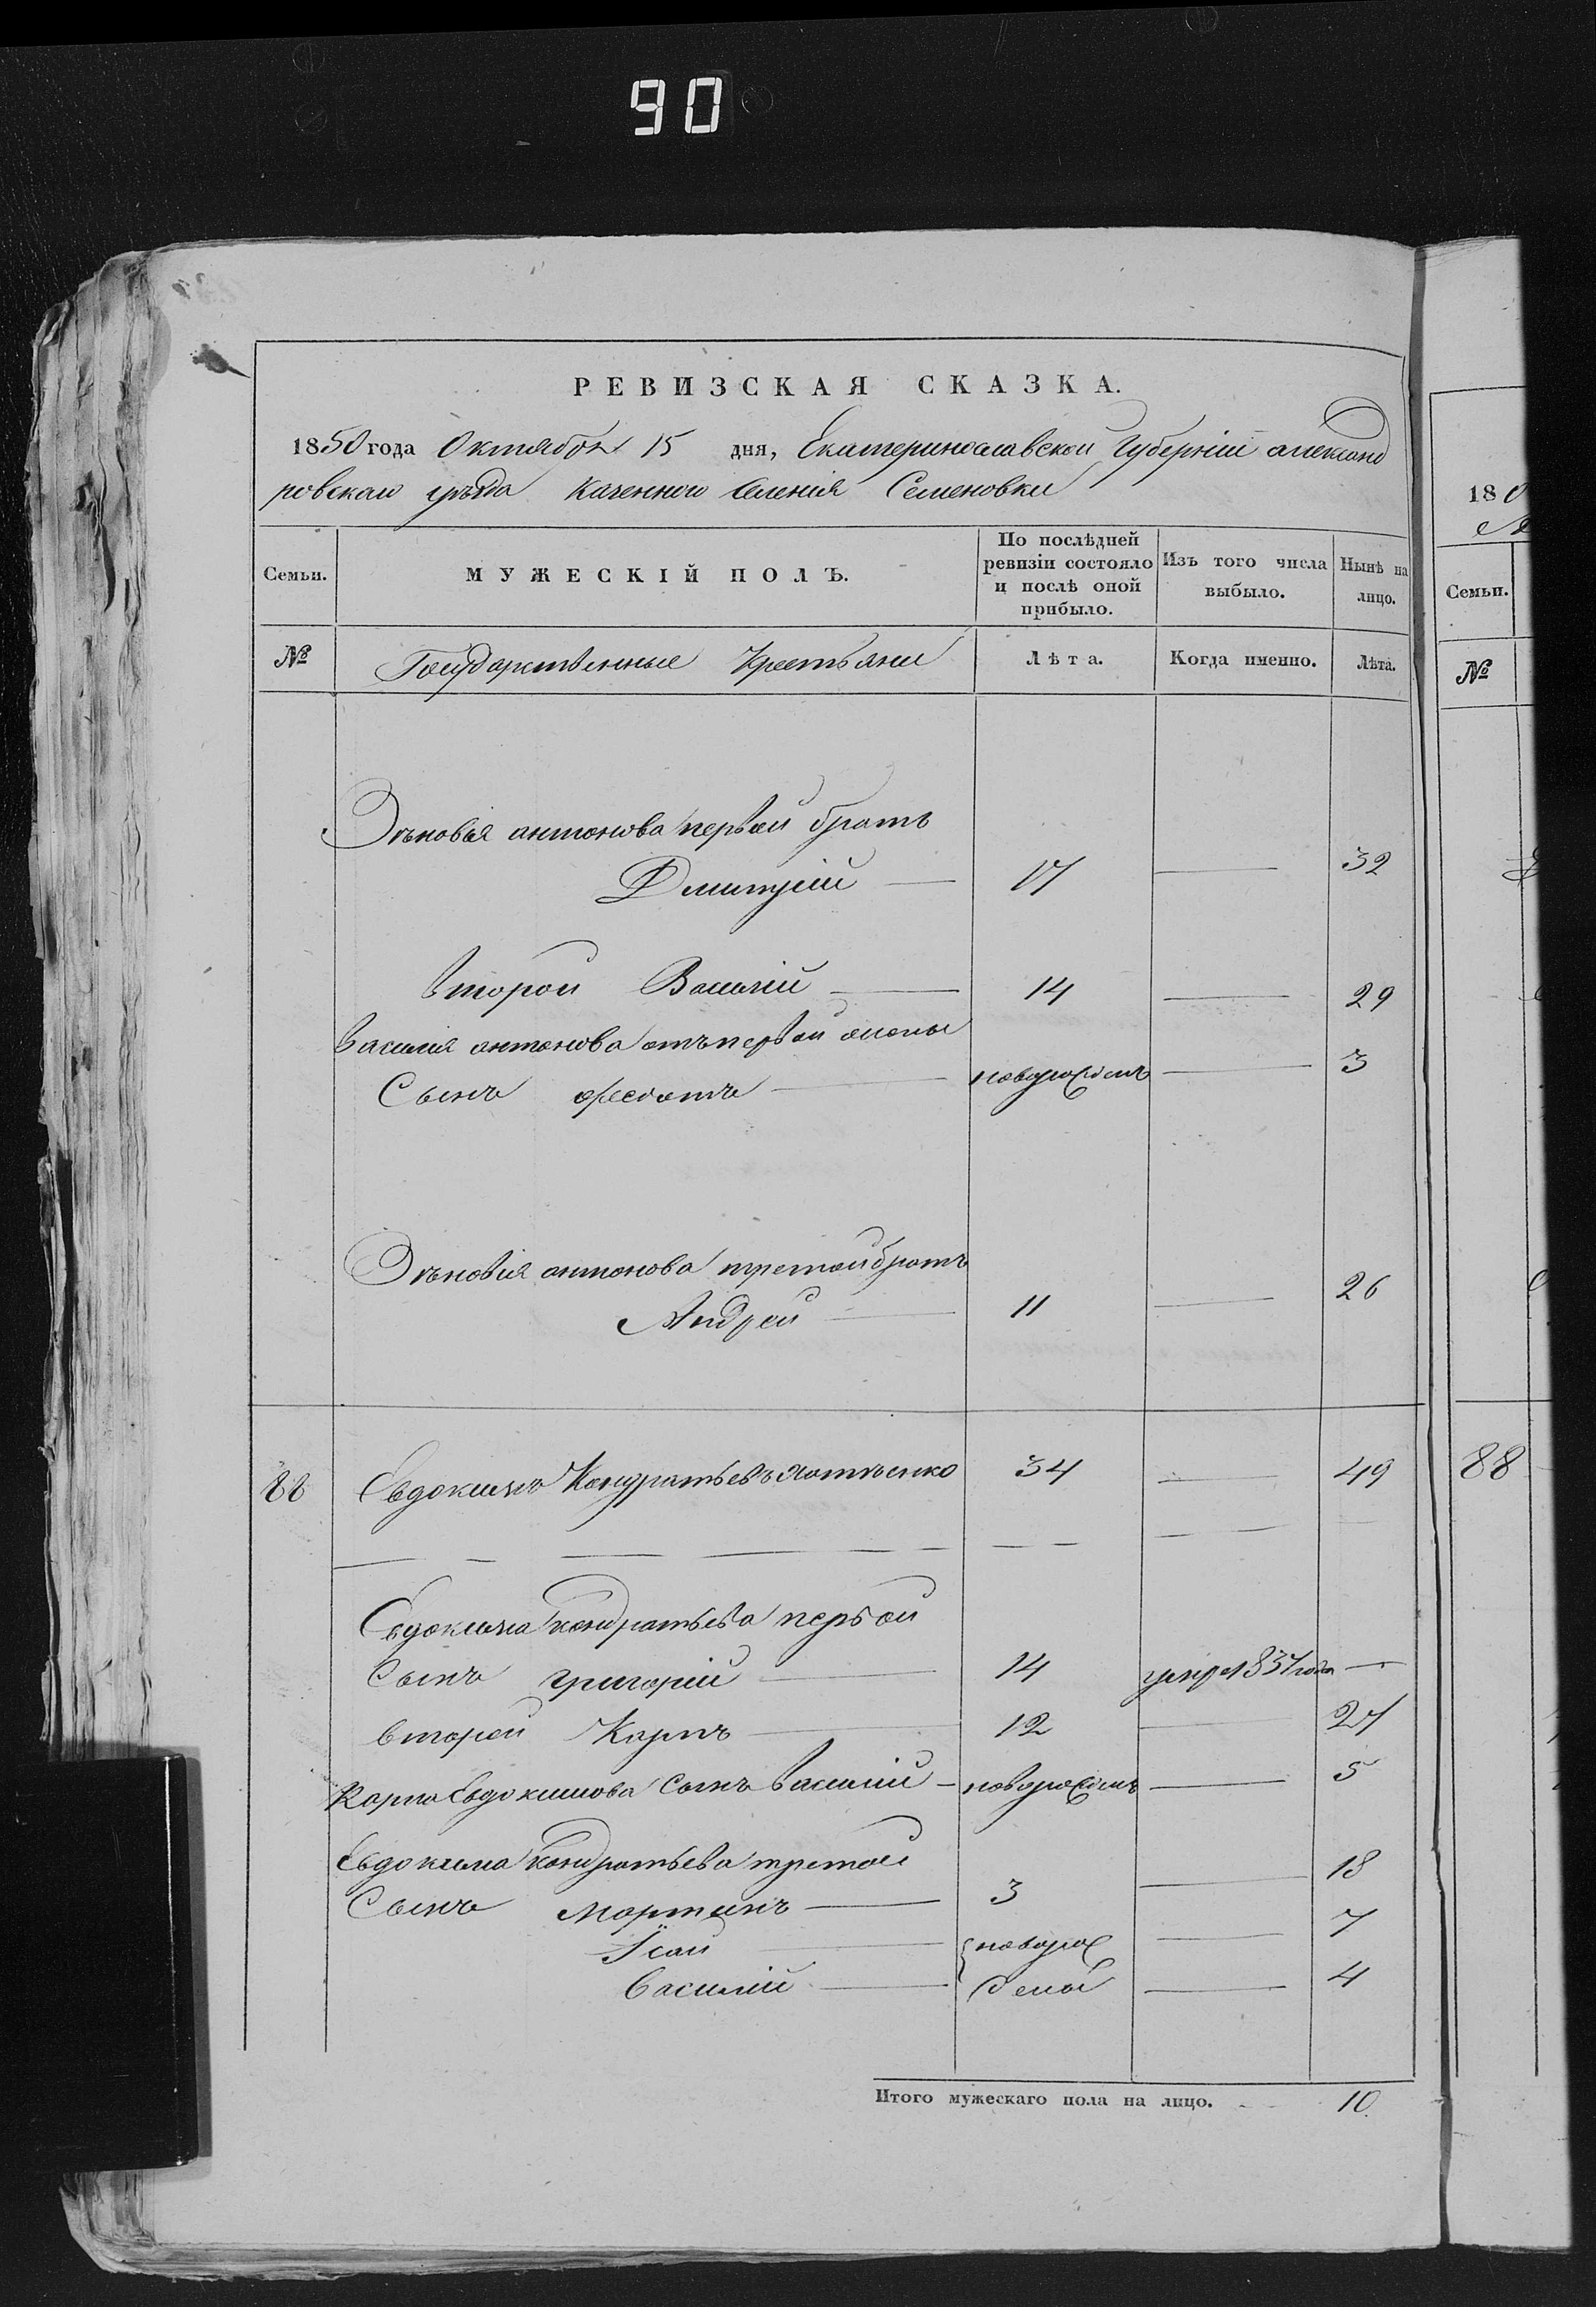 90
РЕВИЗСКАЯ СКАЗКА.
1850 года Октября 15 дня, Екатеринославской Губерніи александ
ровскаго уѣзда казенного Селенія Семеновки
Семьи. МУЖЕСКІЙ ПОЛЪ. По послѣдней ревизіи состояло и послѣ оной прибыло. Изъ того числа выбыло. Нынѣ на лицо.
№ Государственные Крестьяне Лѣта. Когда именно. Лѣта.
антонова первой братъ
Дмитрій 17 32
второй Василій 14 29
Василія антонова отъ первой жены
Сынъ новорожденъ 3
антонова третой братъ
Андрей 11 26
88 Евдокимъ Кондратьевъ 34 49
Евдокима Кондратьева первой
Сынъ григорій 14 умре 1837 года
второй Карпъ 12 27
Карпа Евдокимова Сынъ Василій новорожденъ 5
Евдокима Кондратьева третой
Сынъ мартинъ 3 18
Ісай новорож 7
Василій дены 4
Итого мужескаго пола на лицо. 10.
180
Семьи.
№
88